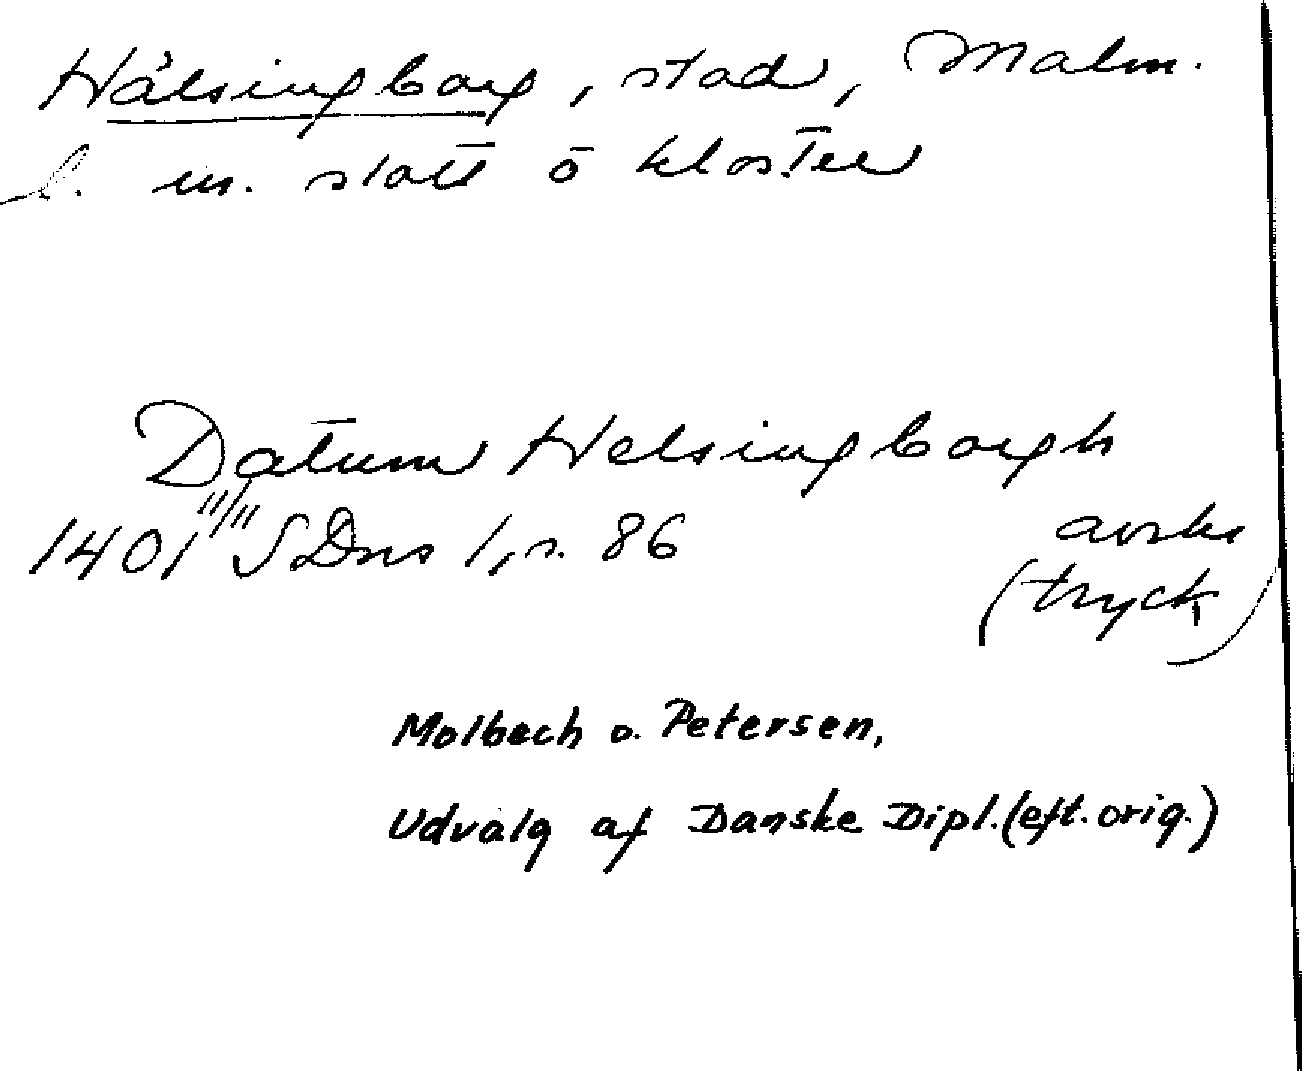 Hälsingborg, stad, Malm.
l. m. slott o kloster
Datum Helsingborgh
1401 11/11 SDns 1, s. 86
avskr
(tryck)
Molbech o. Petersen,
Udvalg af Danske Dipl. (eft. orig.)